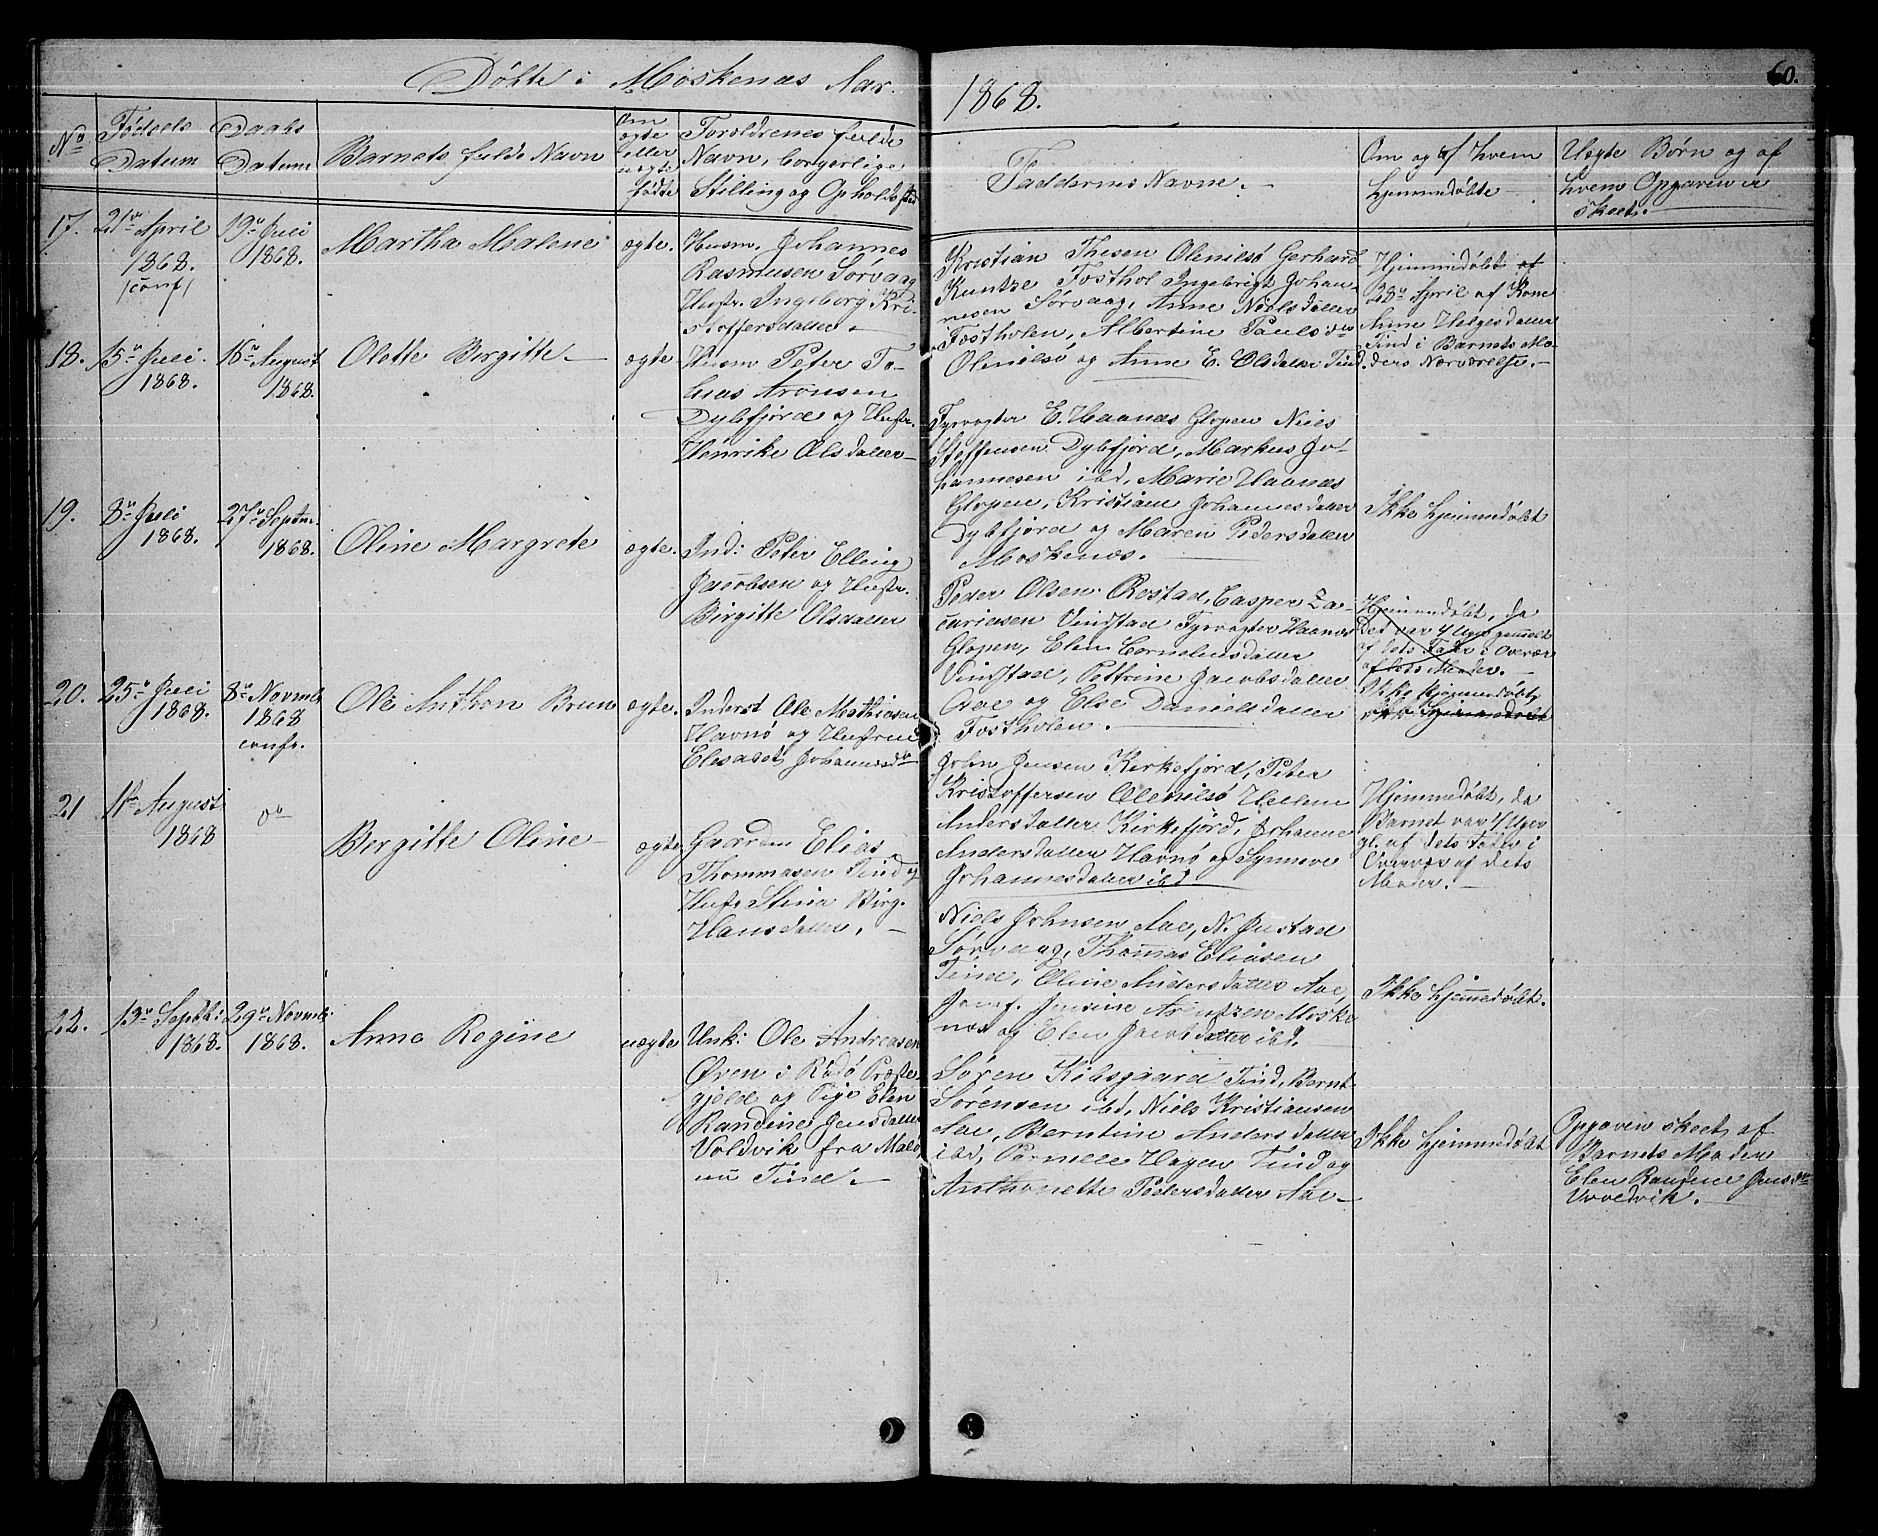 Døbte i Moskenæs Aar
1868.
60.
No
Fødsels
Datum
Daabs
Datum
Barnets fulde Navn
Om
ægte
eller
uægte
fødte
Forældrenes fulde
Navn, borgerlige
Stilling og Opholdssted
Faddernes Navne.
Om og af hvem
hjemmedøbte
Uægte Børn og af
hvem Opgaven er
skeet.
17.
21de April
1868.
conf
19de Juli
1868.
Martha Malene
ægte.
Husm. Johannes
Rasmusen Sørvaag
Hustr. Ingeborg Kri-
stoffersdatter
Kristian Thesen Olenilsø Gerhard
Kuntze Fosthol Ingebrigt Johan
nesen Sørvaag, Anne Nielsdatter
Fostholen, Albertine Paulsdr
Olenilsø og Anne E. Olsdatter Tind.
Hjemmedøbt af
28de April af Kone
Anne Helgesdatter
Tind i Barnets Mo-
ders Nærværelse.
18.
15de Juli
1868.
16de August
1868.
Olette Birgitte
ægte
Husm Peter To-
bias Aronsen
Dybfjord og Hustr.
Henrike Olsdatter
Fyrvogter E. Haanæs Glopen Niels
Steffensen Dybfjord, Markus Jo-
hannesen ibd, Marie Haanæs
Glopen, Kristiane Johannesdatter
Dybfjord og Maren Pedersdatter
Moskenæs.
Ikke hjemmedøbt
19.
8de Juli
1868.
27de Septm.
1868.
Oline Margrete
ægte.
Ind: Peter Elling
Jacobsen og Hustr.
Birgitte Olsdatter
Peder Olsen Rostad, Casper Za-
cariasen Vindstad Fyrvogter Haanæs
Glopen, Elen Corneliusdatter
Vindstad, Pettrine Jacobsdatter
Aae og Else Danielsdatter
Fostholen.
Hjemmedøbt, da
det var 4 Uger gammelt
af dets Fader i Overvær
af dets Moder.
Ikke hjemmedøbt
Ikke hjemmedøbt
20.
25de Juli
1868.
8de Novmb.
1868
confr.
Ole Anthon Brun
ægte.
Inderst Ole Mathiasen
Havnø og Hustrue
Elisabet Johannesdr
John Jensen Kirkefjord, Peter
Kristoffersen Olenilsø Hellene
Andersdatter Kirkefjord, Johanne
Andersdatter Havnø og Synneve
Johannesdatter ibd
Hjemmedøbt, da
Barnet var 4 Uger
gl. af dets Fader i
Overvær af dets
Moder.
21
11de August
1868
do
Bergitte Oline
ægte
Gaardm Elias
Thommasen Tind og
Hustr Stina Birg.
Hansdatter.
Niels Johnsen Aae, N. Justad
Sørvaag, Thomas Eliasen
Tind, Oline Andersdatter Aae,
Jomf. Jensine Arntzen Moske
næs og Elen Jacobsdatter ibd.
Ikke hjemmedøbt.
22.
13de Septbr:
1868.
29de Novmb:
1868.
Anne Regine
uægte
Unk: Ole Andreasen
Øren i Rødø Præste-
gjeld og Pige Elen
Randine Jensdatter
Voldvik fra
nu Tind.
Søren Kobsgaard Tind, Bernt
Sørensen ibd, Niels Kristiansen
Aae, Berntine Andersdatter
ibd, Pernelle Hagen Tind og
Anthonette Pedersdatter Aae
Ikke hjemmedøbt
Opgaven skeet af
Barnets Moder
Elen Randine Jensdr